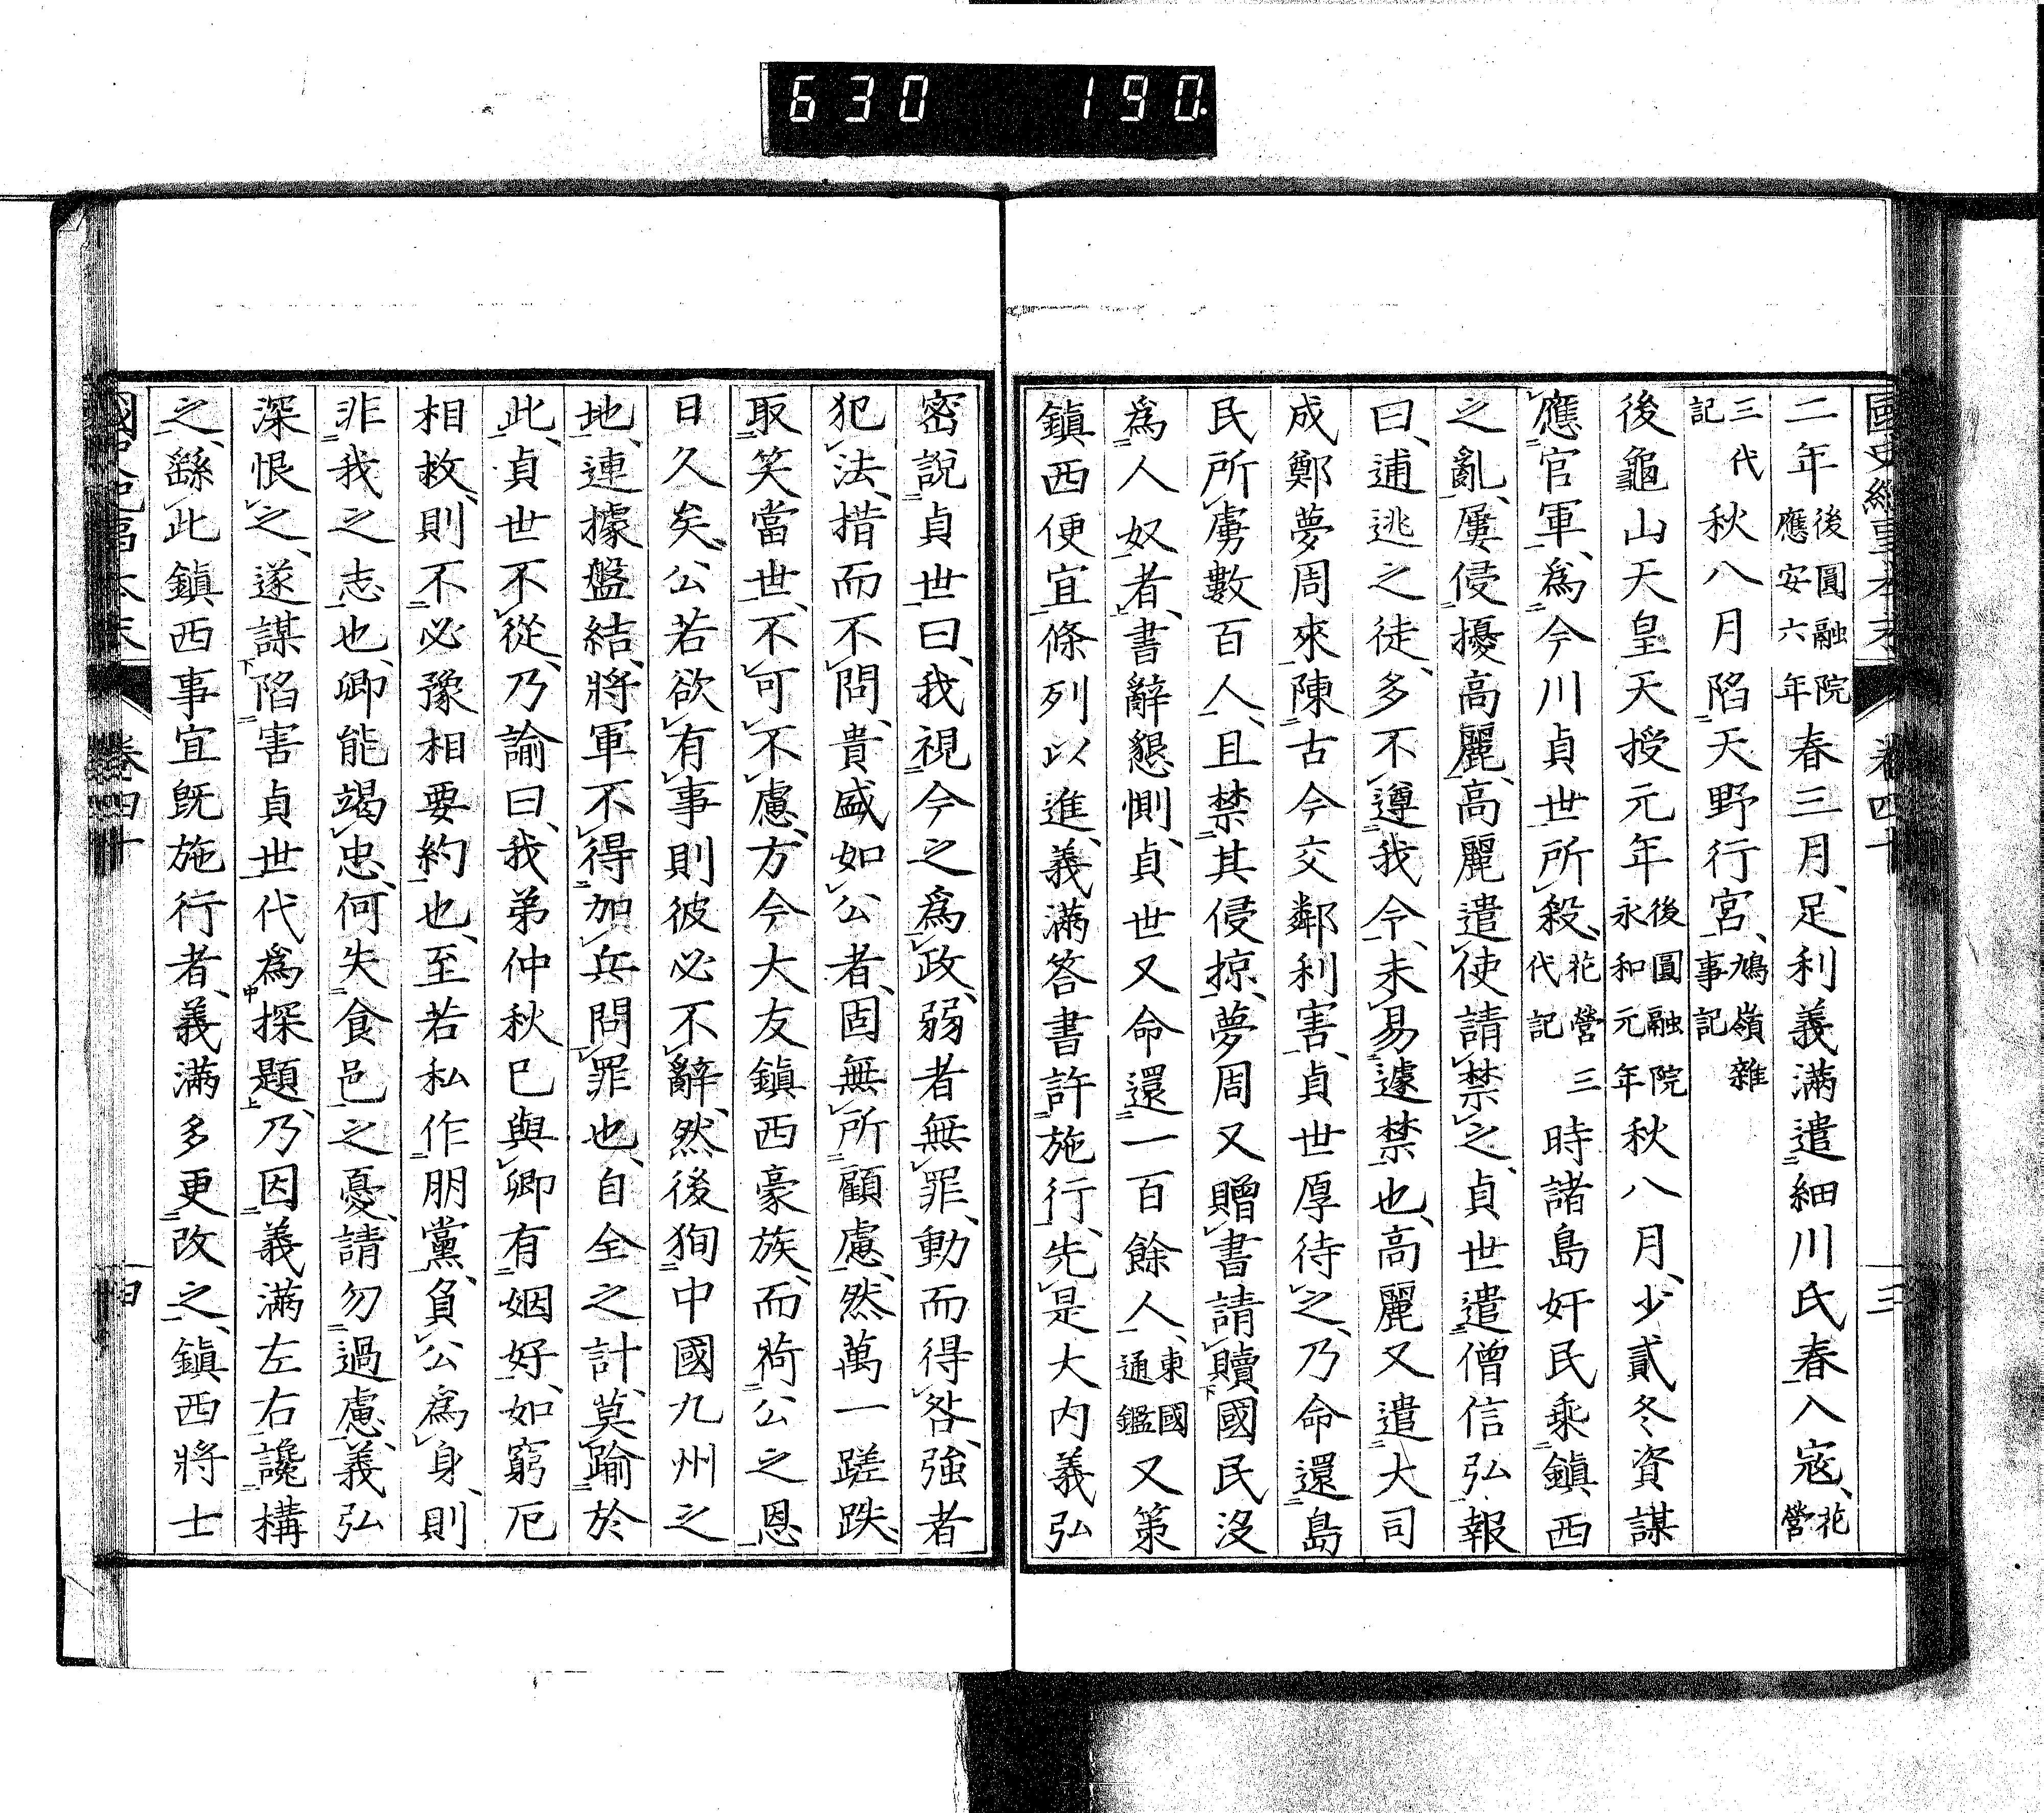 630 190
國史紀事本末 卷四十 三
二年後圓融院應安六年春三月、足利義滿遣細川氏春入寇、花營
三代記秋八月陷天野行宮、鳩嶺雜事記
後龜山天皇天授元年後圓融院永和元年秋八月、少貳冬資謀
應官軍、爲今川貞世所殺、花營三代記時諸島奸民乘鎭西
之亂、屢侵擾高麗、高麗遣使請禁之、貞世遣僧信弘報
曰、逋逃之徒、多不遵我令、未易遽禁也、高麗又遣大司
成鄭夢周來、陳古今交鄰利害、貞世厚待之、乃命還島
民所虜數百人、且禁其侵掠、夢周又贈書請贖國民沒
爲人奴者、書辭懇惻、貞世又命還一百餘人、東國通鑑又策
鎭西便宜條列以進、義滿答書許施行、先是大内義弘
密說貞世曰、我視今之爲政、弱者無罪、動而得咎、強者
犯法、措而不問、貴盛如公者、固無所顧慮、然萬一蹉跌、
取笑當世、不可不慮、方今大友鎭西豪族、而荷公之恩
日久矣、公若欲有事則彼必不辭、然後狥中國九州之
地、連據盤結、將軍不得加兵問罪也、自全之計、莫踰於
此、貞世不從、乃諭曰、我弟仲秋已與卿有姻好、如窮厄
相救、則不必豫相要約也、至若私作朋黨、負公爲身、則
非我之志也、卿能竭忠、何失食邑之憂、請勿過慮、義弘
深恨之、遂謀陷害貞世代爲探題、乃因義滿左右讒構
之、繇此鎭西事宜既施行者、義滿多更改之、鎭西將士
國史紀事本末 卷四十 四